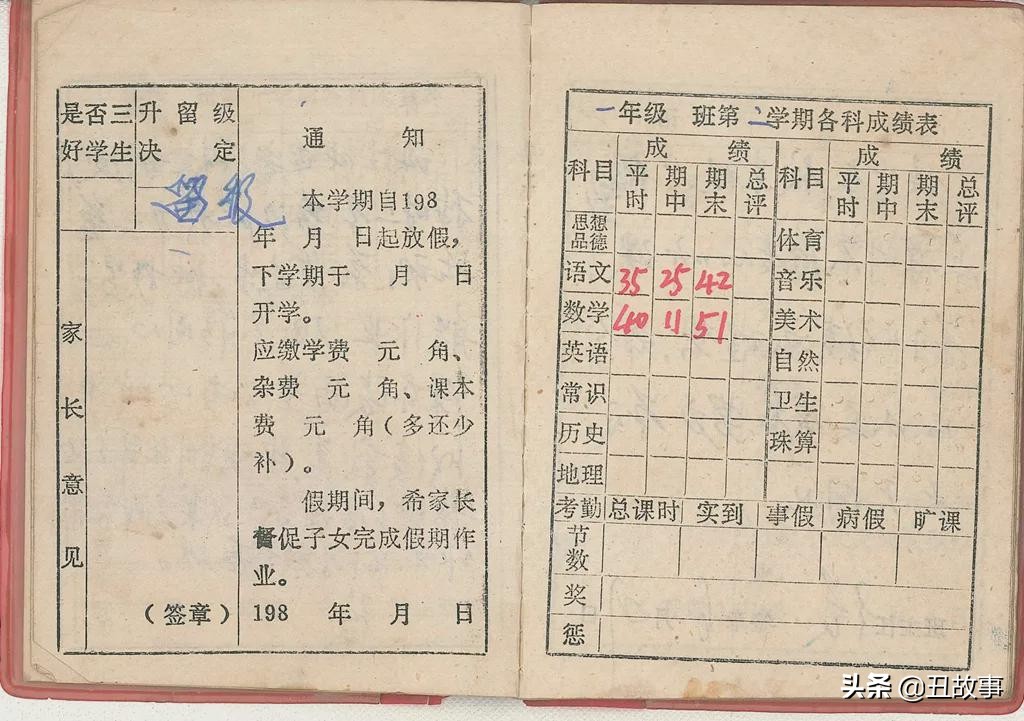 是否三好学生
升留级决定
留级
家长意见
(签章)
通知
本学期自198
年 月 日起放假，
下学期于 月 日
开学。
应缴学费 元 角、
杂费 元 角、课本
费 元 角(多还少
补)。
假期间，希家长
督促子女完成假期作
业。
198 年 月 日
一年级 班第二学期各科成绩表
科目 成绩 科目 成绩
平时 期中 期末 总评 平时 期中 期末 总评
思想品德 体育
语文 35 25 42 音乐
数学 40 11 51 美术
英语 自然
常识 卫生
历史 珠算
地理
考勤 总课时 实到 事假 病假 旷课
节数
奖
惩
头条 @丑故事